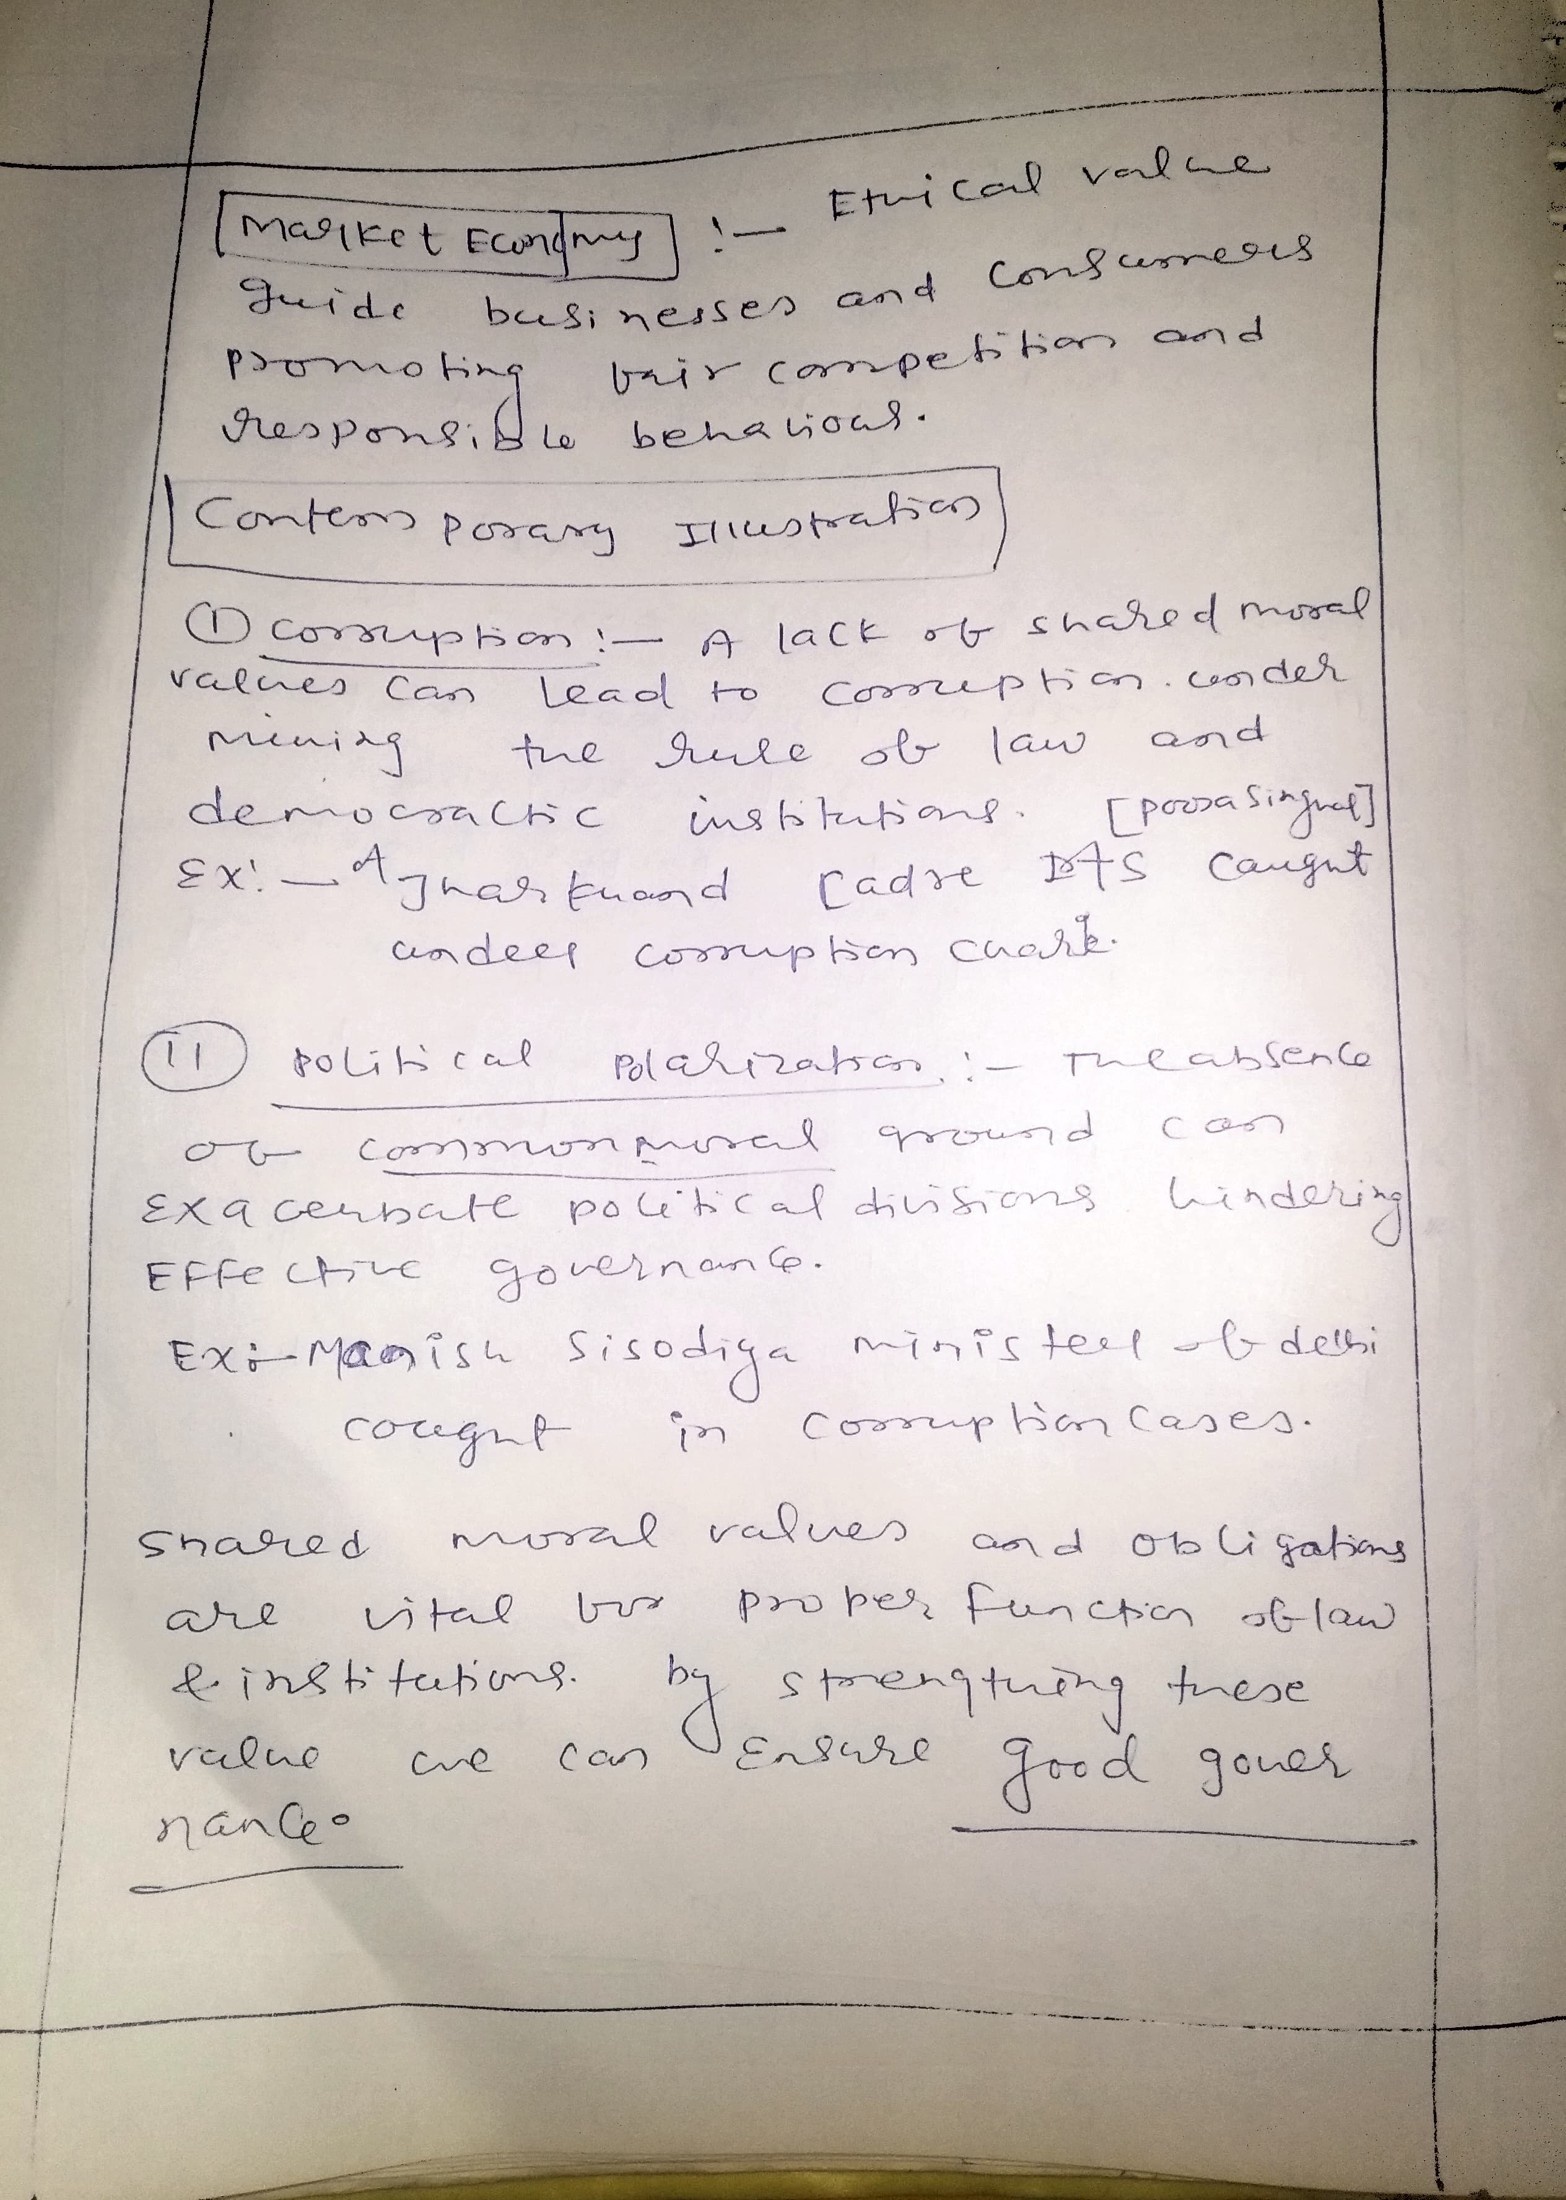 Market Economy :- Ethical value
guide businesses and consumers
promoting fair competition and
responsible behaviour.
Contemporary Illustration
① corruption :- A lack of shared moral
values can lead to corruption. under
mining the rule of law and
democractic institutions. [pooja Singhal]
Ex:- A Jharkhand Cadre IAS caught
under corruption
II Political Polarization :- The absence
of common moral ground can
Exacerbate political divisions hindering
Effective governance.
Ex:- Manish Sisodiya minister of delhi
caught in corruption cases.
Shared moral values and obligations
are vital for proper function of law
& institutions. by strengthing these
value we can Ensure good gover
nance.